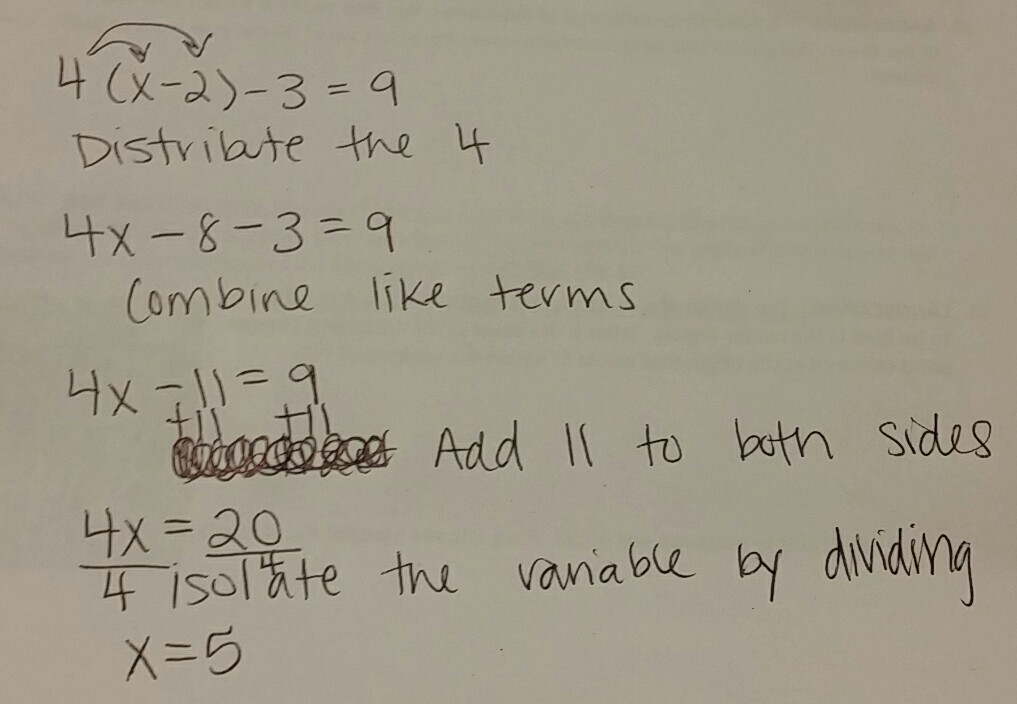 4(x-2)-3=9
Distribute the 4
4x-8-3=9
Combine like terms
4x-11=9
+11 +11
Add 11 to both sides
4x=20
4 4
isolate the variable by dividing
x=5